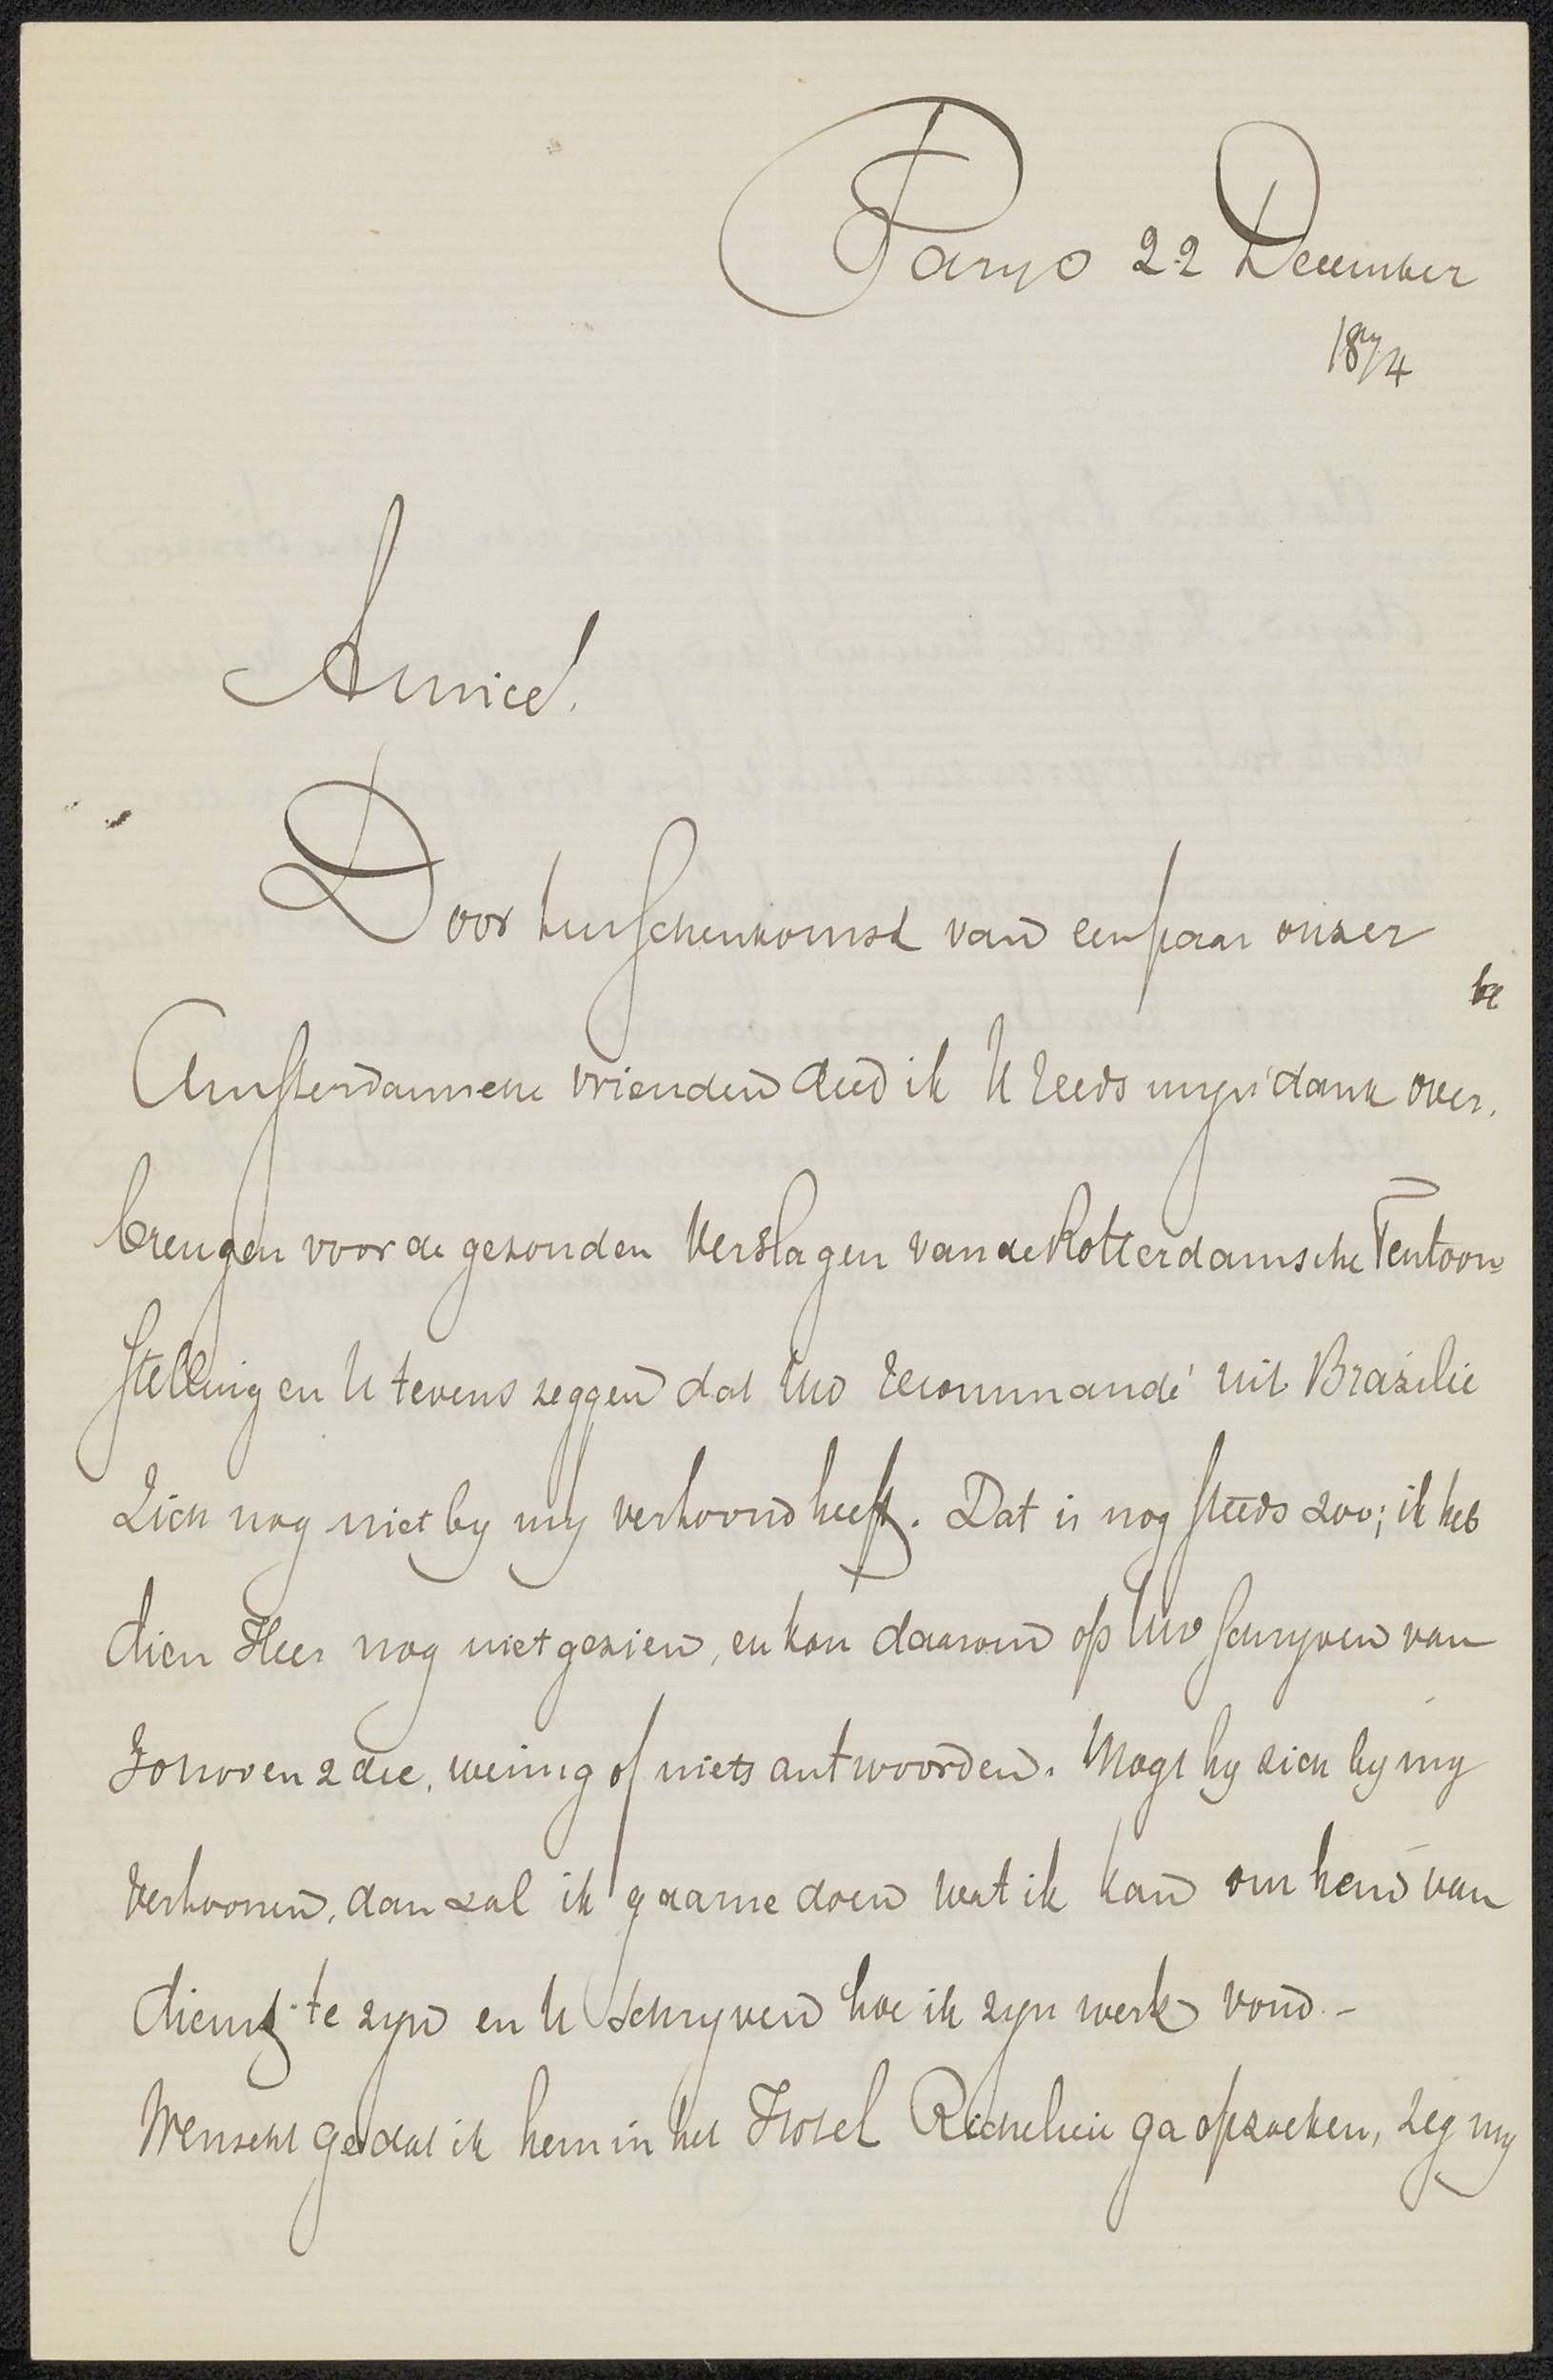 Parys 22 December
1874
Amice!
Door tusschenkomst van een paar onzer
Amsterdamsche vrienden deed ik U reeds myn dank over„
brengen voor de gezonden Verslagen van de Rotterdamsche Tentoon„
stelling en U tevens zeggen dat Uw recommandé uit Brazilie
zich nog niet by my vertoond heeft. Dat is nog steeds zoo; ik heb
dien Heer nog niet gezien, en kan daarom op Uw schryven van
zoo weinig of niets antwoorden. Mogt hy zich by my
vertoonen, dan zal ik gaarne doen wat ik kan om hem van
dienst te zyn en U schryven hoe ik zyn werk vond. –
Wenscht ge dat ik hem in het Hotel Richelieu ga opzoeken, zeg my